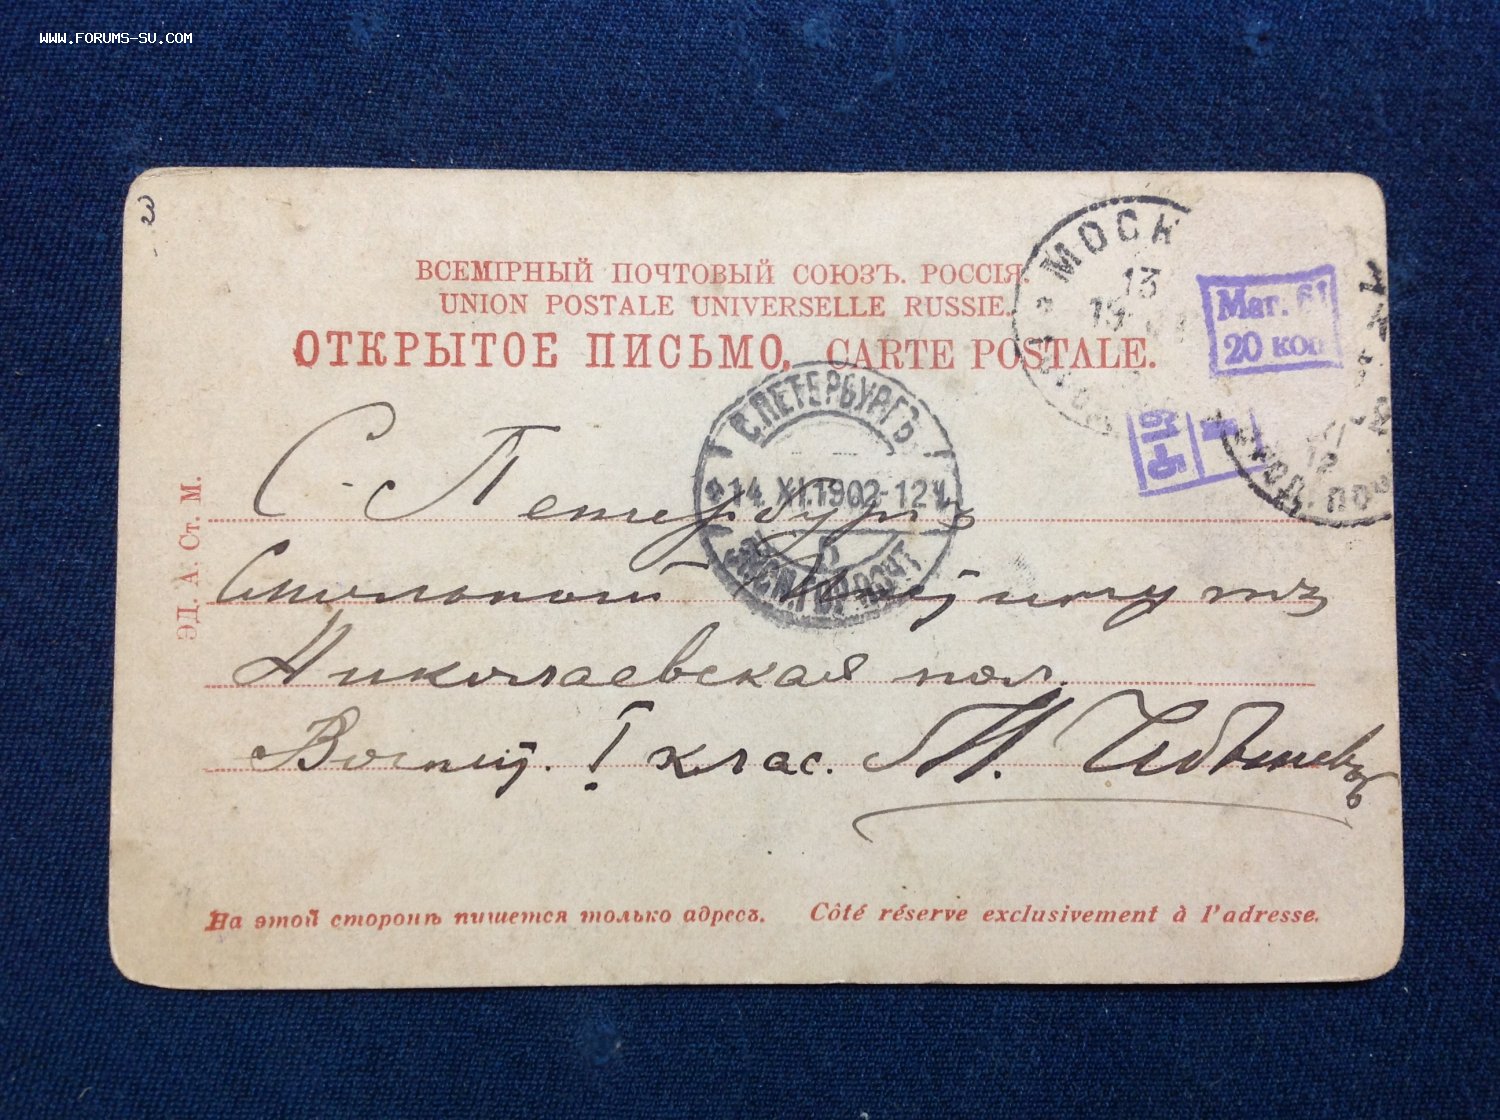 WWW.FORUMS-SU.COM
З
ВСЕМІРНЫЙ ПОЧТОВЫЙ СОЮЗЪ. РОССІЯ.
UNION POSTALE UNIVERSELLE RUSSIE.
ОТКРЫТОЕ ПИСЬМО. CARTE POSTALE.
МОСК
13
Маг. 61
20 коп
С.ПЕТЕРБУРГЪ
14.XI.1902-12Ч.
ГОР.ПОЧТ
ЭД. А. Ст. М.
С-Петербургъ
Смольный Институтъ
Николаевская пол.
Воспит. I клас. М. Чебышевъ
На этой сторонѣ пишется только адресъ. Côté réserve exclusivement à l'adresse.